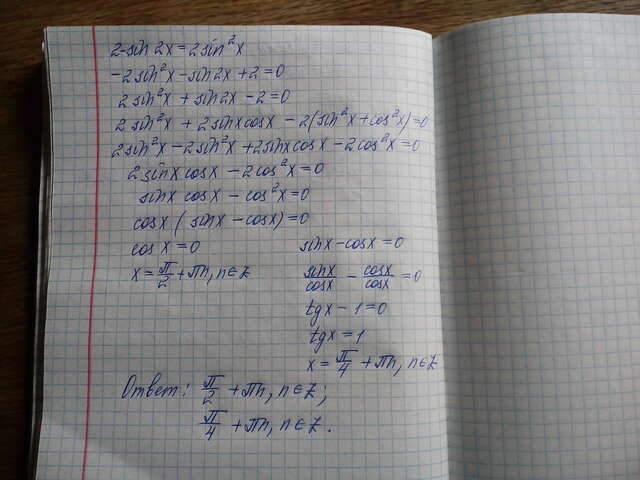 2-sin 2x = 2sin²x
-2sin²x - sin2x + 2 = 0
2sin²x + sin2x - 2 = 0
2sin²x + 2sinx cosx - 2(sin²x + cos²x) = 0
2sin²x - 2sin²x + 2sinx cosx - 2cos²x = 0
2sinx cosx - 2cos²x = 0
sinx cosx - cos²x = 0
cosx (sinx - cosx) = 0
cosx = 0
x = π/2 + πn, n∈Z
sinx - cosx = 0
sinx/cosx - cosx/cosx = 0
tgx - 1 = 0
tgx = 1
x = π/4 + πn, n∈Z
Ответ: π/2 + πn, n∈Z;
π/4 + πn, n∈Z.